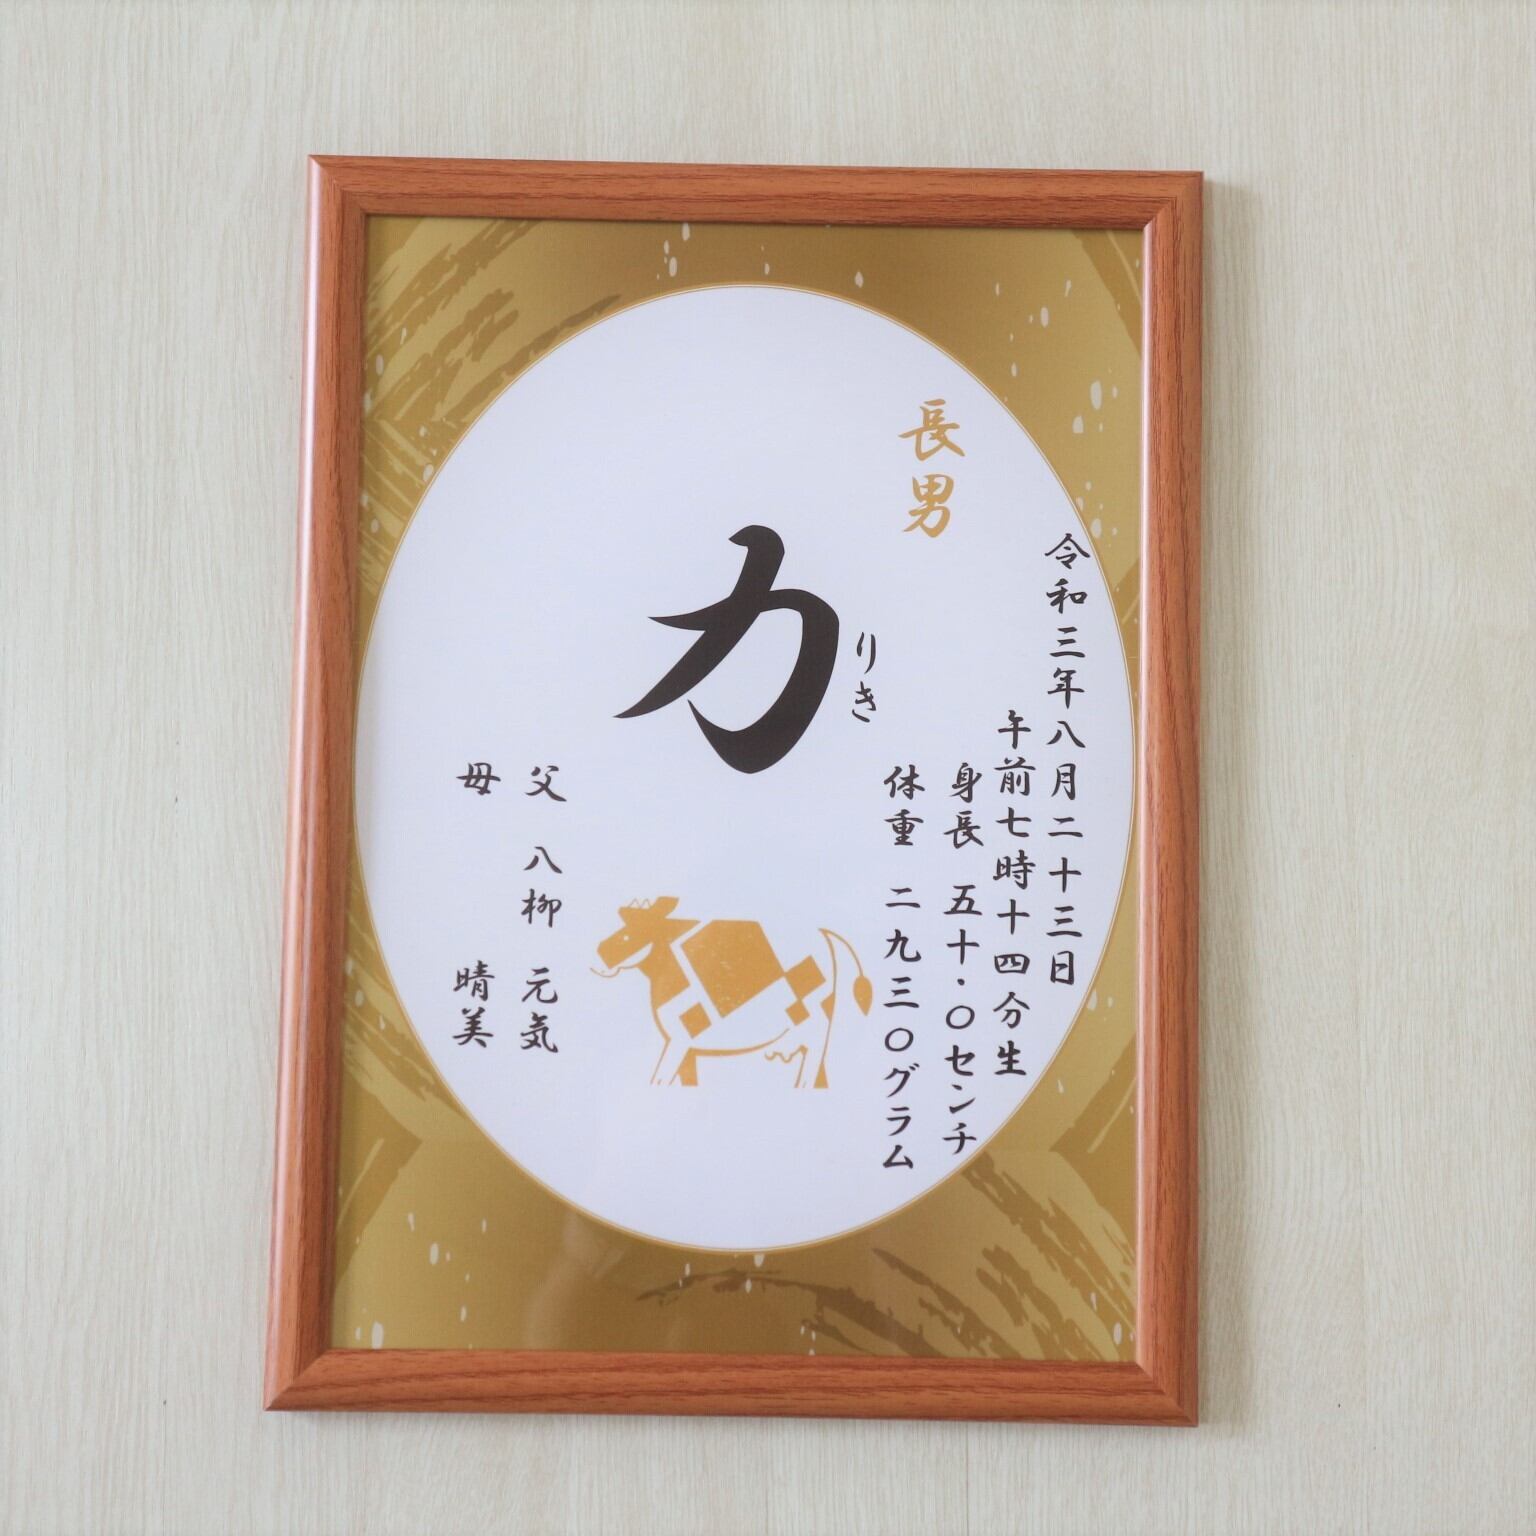 長男
力
りき
令和三年八月二十三日
午前七時十四分生
身長 五十・〇センチ
体重 二九三〇グラム
父 八柳 元気
母 晴美